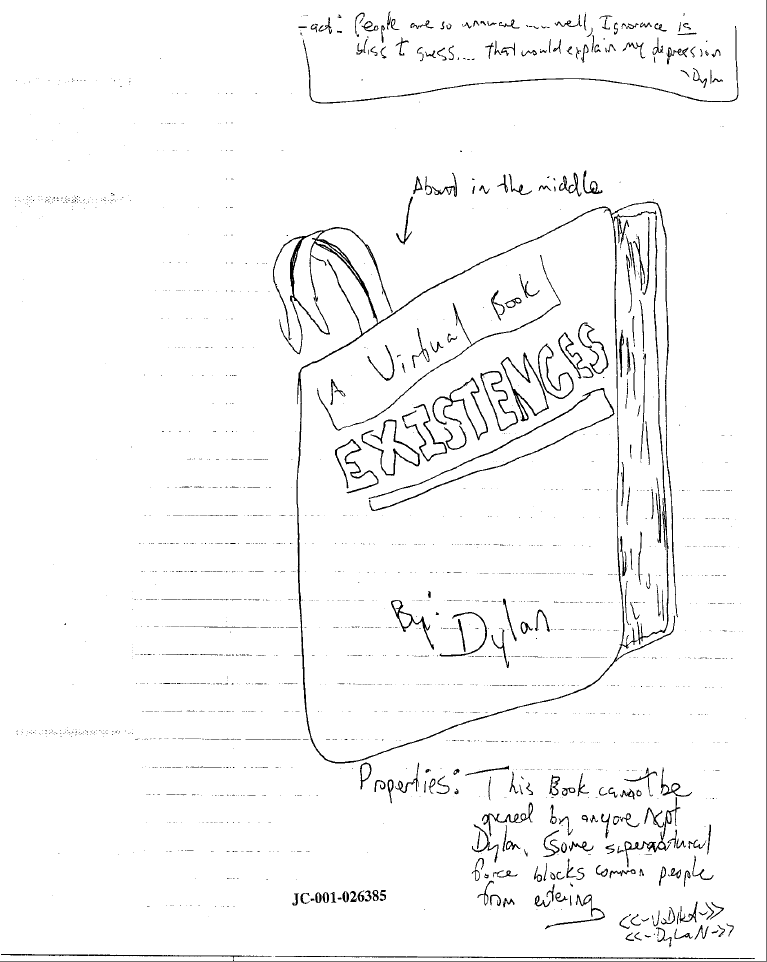 Fact: People are so unaware.... well, Ignorance is
bliss I guess.... that would explain my depression
~Dylan
About in the middle
A Virtual Book
EXISTENCES
By: Dylan
Properties: This Book cannot be
opened by anyone xept
Dylan, Some supernatural
force blocks common people
from entering
JC-001-026385
<<-VoDkA->>
<<-DyLaN->>